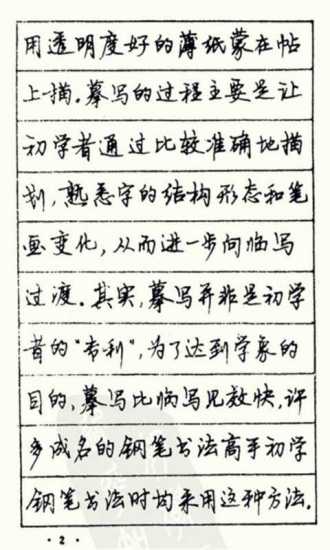 用透明度好的薄纸蒙在帖
上描。摹写的过程主要是让
初学者通过比较准确地描
划,熟悉字的结构形态和笔
画变化,从而进一步向临写
过渡。其实,摹写并非是初学
者的“专利”,为了达到学象的
目的,摹写比临写见效快,许
多成名的钢笔书法高手初学
钢笔书法时均采用这种方法。
·2·